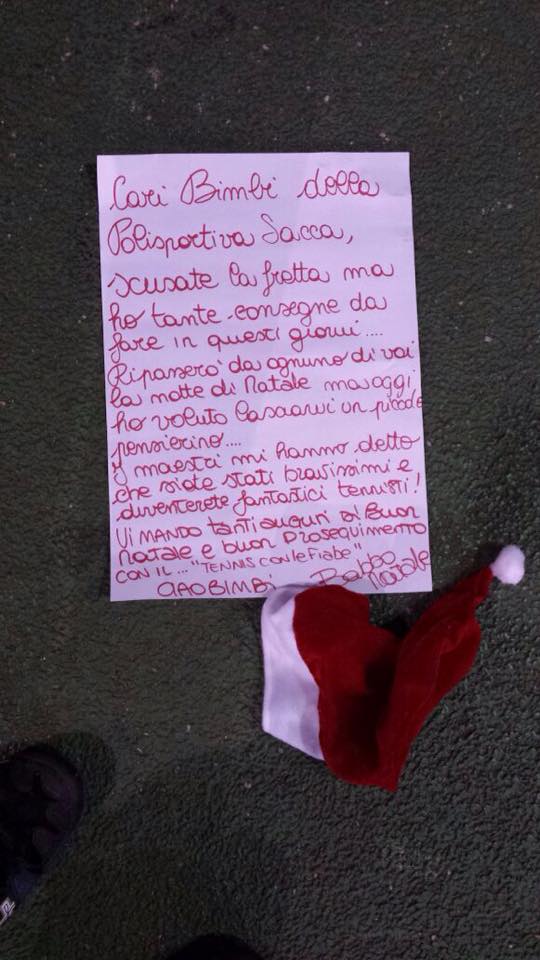 Cari Bimbi della
Polisportiva Sacca,
scusate la fretta ma
ho tante consegne da
fare in questi giorni....
Ripasserò da ognuno di voi
la notte di Natale ma oggi
ho voluto lasciarvi un piccolo
pensierino....
I maestri mi hanno detto
che siete stati bravissimi e
diventerete fantastici tennisti!
VI MANDO tanti auguri di Buon
Natale e buon proseguimento
CON IL ... "TENNIS CON le FiAbe"
CIAO BIMBI
Babbo
Natale